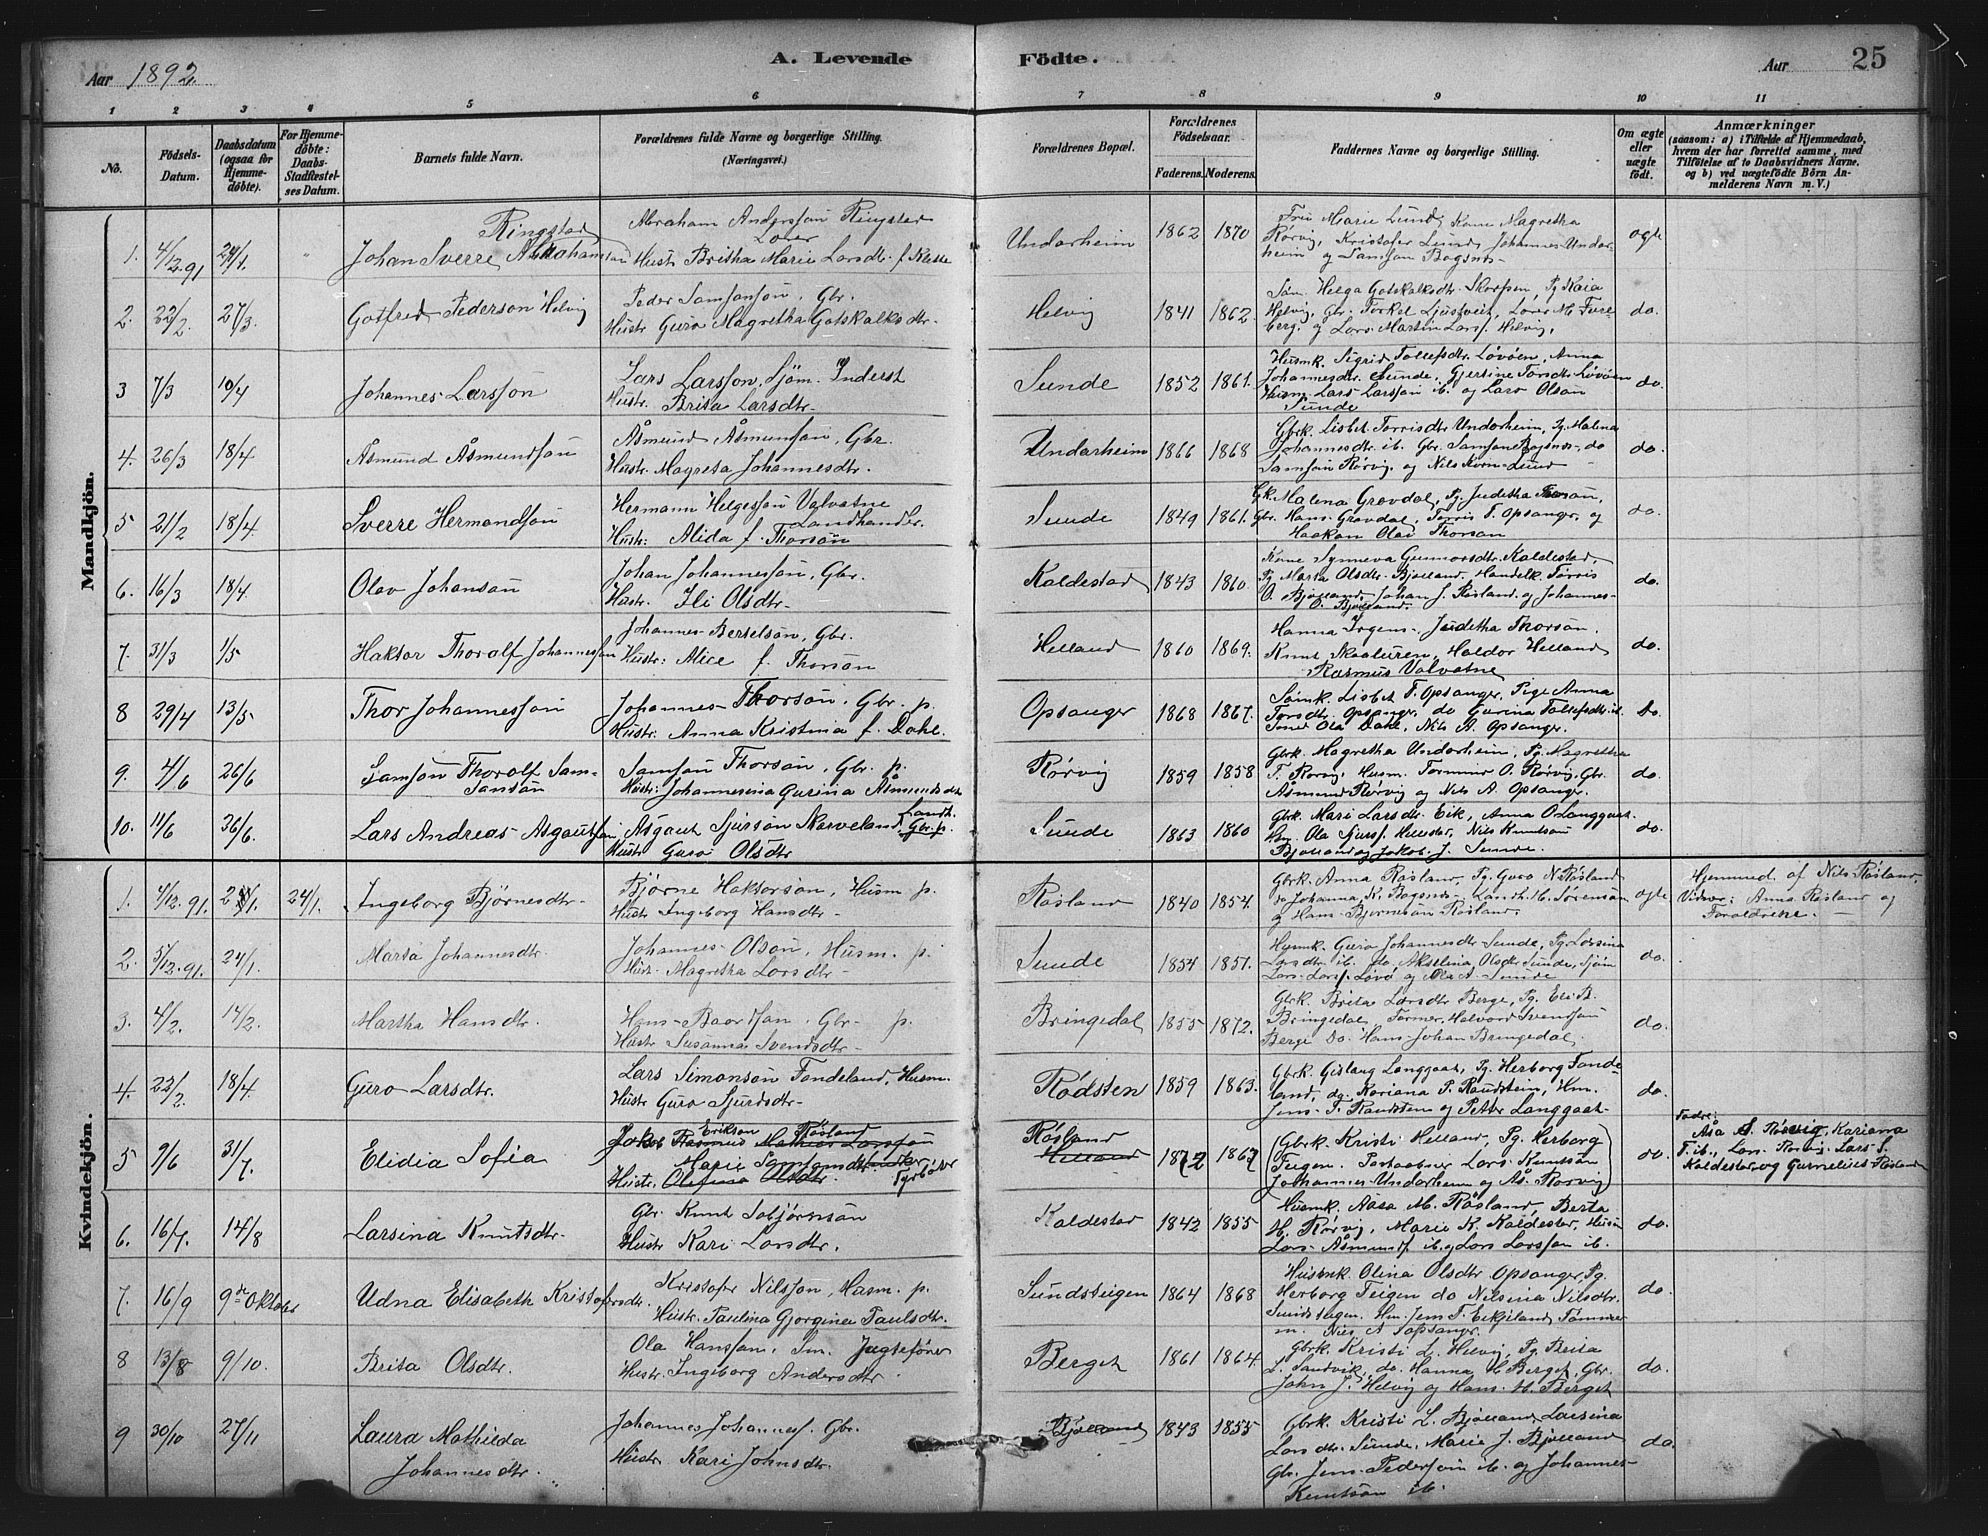 Aar 1892.
A. Levende Födte.
Aar
25
1 2 3 4 5 6 7 8 9 10 11
No.
Födsels-Datum.
Daabsdatum (ogsaa for Hjemme-döbte).
For Hjemme-döbte: Daabs-Stadfæstel-ses Datum.
Barnets fulde Navn.
Forældrenes fulde Navne og borgerlige Stilling.
(Næringsvei.)
Forældrenes Bopæl.
Forældrenes Födselsaar.
Faderens. Moderens.
Faddernes Navne og borgerlige Stilling.
Om ægte eller uægte födt.
Anmærkninger
(saasom: a) i Tilfælde af Hjemmedaab, hvem der har forrettet samme, med Tilföielse af to Daabsvidners Navne, og b) ved uægtefödte Börn An-melderens Navn m. V.)
Mandkjön.
1. 4/12.91 24/1. " Johan Sverre Abrahamson Ringstad
Abraham Anderssøn Ringstad
Hustr. Britha Marie Larsdt.
Undarheim 1862 1870
Frü Marie Lund, Kone Magretha
Rørvig, Kristofer Lund, Johannes Undar-
heim og Samson Bogsnes
ogte
2. 22/2. 27/3. Gotfred Pederson Helvig
Peder Samsonsøn, Gbr.
Hustr Guro Magretha Gotskalksdtr.
Helvig 1841 1862.
Helga Gotskalksdt.
do.
3 7/3 10/4 Johannes Larssøn
Lars Larsson, Sjøm. Inderst
Hustr. Brita Larsdtr.
Sunde 1852 1861.
Husmk. Sigrid Tollefsdtr. Løvøen, Anna
Johannesdtr. Sunde, Gjertine Torsdtr. Løvøen
Husm. Lars Larsson ib. og Lars Olson
Sunde
do.
4. 26/3 18/4 Åsmund Åsmundsøn
Åsmund Åsmunsøn, Gbr.
Hustr. Magreta Johannesdtr.
Undarheim 1866 1868
Gbrk. Lisbet Torrisdtr Undarheim, Pg. Malena
Johannesdtr ib. Gbr. Samson Bogsnes, do
Samson Rørvig og Nils Lund
do.
5 21/2 18/4 Sverre Hermandsøn
Hermann Helgesøn Valvatne
Landhandler.
Hustr: Alida f. Thorsøn
Sunde 1849 1861.
Gk. Malena Gravdal, Pg. Judetha Thorsøn,
Gbr. Hans Gravdal, Torris T. Opsanger, og
Haakon Olai Thorson
do.
6. 16/3 18/4 Olav Johansøn
Johan Johannessøn, Gbr.
Hustr. Ili Olsdtr.
Kaldestad 1843 1860.
Kone Synneva Gunnarsdt. Kaldestad,
Pg. Marta Olsdtr. Bjølland, Handelk. Torris
O. Bjølland, Johan J. Røsland og Johannes
O. Bjølland.
do.
7. 31/3 1/5 Haktor Thoralf Johannessøn
Johannes Bertelsøn, Gbr.
Hustr: Alice f. Thorson
Helland 1860 1869.
Hanna Irgens, Judetha Thorson,
Knut Skaaluren, Haldor Helland
Rasmus Valvatne
do.
8 29/4 13/5 Thor Johannessøn
Johannes Thorsøn, Gbr. p.
Hustr. Anna Kristina f. Dahl.
Opsanger 1868 1867.
Lisbet T. Opsanger, Pige Anna
Torsdtr. Opsanger, do Gurina Tollefsdtr. ib.
Ola Dahl, Nils A. Opsanger.
do.
9. 4/6 26/6 Samson Thoralf Sam-
sonsøn
Samson Thorsøn, Gbr. p.
Hustr: Johannesina Gurina Åsmundsdt
Rørvig 1859 1858
Gbrk. Magretha Undarheim, Pg. Magretha
T. Rørvig, Husm. Tormur O. Rørvig, Gbr.
Åsmund Rørvig og Nils A. Opsanger.
do.
10. 11/6 26/6. Lars Andreas Asgautsøn
Asgaut Sjursøn Skarveland, Landh.
Gbr. p.
Hustr Guro Olsdtr
Sunde 1863 1860
Gbrk. Mari Larsdtr Eik, Anna O. Langgaat
Ola Sjurss. Nils Knutsøn
Bjølland og Jakob J. Sunde.
do.
Kvindekjön.
1. 4/12.91. 24/1. Ingeborg Bjørnesdtr.
Bjørne Haktorsøn, Husm. p.
Hustr Ingeborg Hansdtr.
Røsland 1840 1854.
Gbrk. Anna Røsland, Pg. Guro N. Røsland
do Johanna K. Bogsnes, Landh. M. Sørensøn
og Hans Bjørnesøn Røsland.
ogte
Hjemmd. af Nils Røsland.
Vidner: Anna Røsland og
Foraldrene.
2. 5/12.91. 24/1. Marta Johannesdtr.
Johannes Olson, Husm. p.
Hustr. Magretha Larsdtr
Sunde 1854 1851.
Husmk. Guro Johannesdtr Sunde, Pg. Larsina
Larsdtr ib. do. Akselina Olsdtr Sunde, Sjøm
Lars Larss. Løvø og Ola A. Sunde
do.
3. 4/2. 14/2. Martha Hansdtr.
Hans Baardsøn, Gbr. p.
Hustr Susanna Svendsdtr
Bringedal 1855 1872.
Gbrk. Brita Larsdtr Berge, Pg. Eli B.
Bringedal, Tømmer. Halvard Svendsøn
Berge do. Hans Johan Bringedal.
do.
4. 22/2 18/4 Guro Larsdtr.
Lars Simonsøn Tondeland, Husm.
Hustr Guro Sjurdsdtr
Rødsten 1859 1863.
Gbrk. Gislaug Langgaat, Pg. Herborg Tonde-
land, do. Kariana P. Raudstein, Hm.
Jens T. Raudstein og Petter Langgaat
do.
5 9/6 31/7. Elidia Sofia
Jakob Rasmus Erikson Røsland
Hustr. Marie
Fyrbøter
Røsland
Helland
1872 1867
Gbrk. Kristi Helland, Pg. Herborg
Teigen, Postaabner Lars Knutsøn
Johannes Undarheim og Ås. Rørvig
do.
Fadre:
Åsa S. Rørvig, Kariana
T. ib., Lars Rørvig, Lars S.
Kaldestad og Gurnelius Røsland
6. 16/7. 14/8 Larsina Knutsdtr.
Gbr. Knut Torbjørnsøn
Hustr Kari Larsdtr.
Kaldestad 1842 1855
Husmk. Aasa M. Røsland, Berta
M. Rørvig, Marie K. Kaldestad, Husm
Lars Åsmunds. ib. og Lars Larsson ib.
do.
7. 16/9 9de Oktober Udna Elisabeth Kristofersdtr.
Kristofer Nilsson, Husm. p.
Hustr. Paulina Gjorginea Paulsdtr.
Sundsteigen 1864 1868
Husmk. Olina Olsdtr Opsanger, Pg.
Herborg Teigen do Nilsina Nilsdtr.
Sundsteigen. Hm. Jens T. Eikjeland, Tømmer
m. Nils A. Opsanger.
do.
8 13/8 9/10. Brita Olsdtr.
Ola Hansson, Sm. Jagtefører
Hustr. Ingeborg Andersdtr
Berget 1861 1864.
Gbrk. Kristi L. Helvig, Pg. Brita
L. Sandvik, do. Hanna H. Berget, Gbr.
John J. Helvig og Hans H. Berget
do.
9 30/10 27/11 Laura Mathilda
Johannesdtr.
Johannes Johanness. Gbr.
Hustr Kari Johnsdtr.
Bjølland 1843 1855
Gbrk. Kristi L. Bjølland, Larsina
Larsdtr. Sunde, Marie J. Bjølland
Gbr. Jens Pedersøn ib. og Johannes
Knutsøn ib.
do.